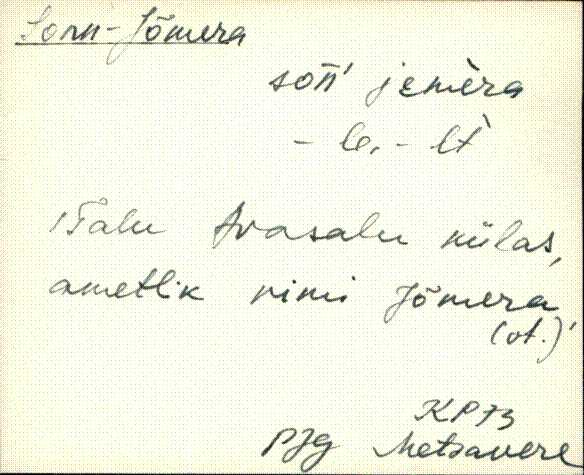 Sonn-Jõmera
sonn' jemèra
- le, - lt
Talu Avasalu külas,
ametlik nimi Jõmera
(vt.)
KP73
PJg Metsavere